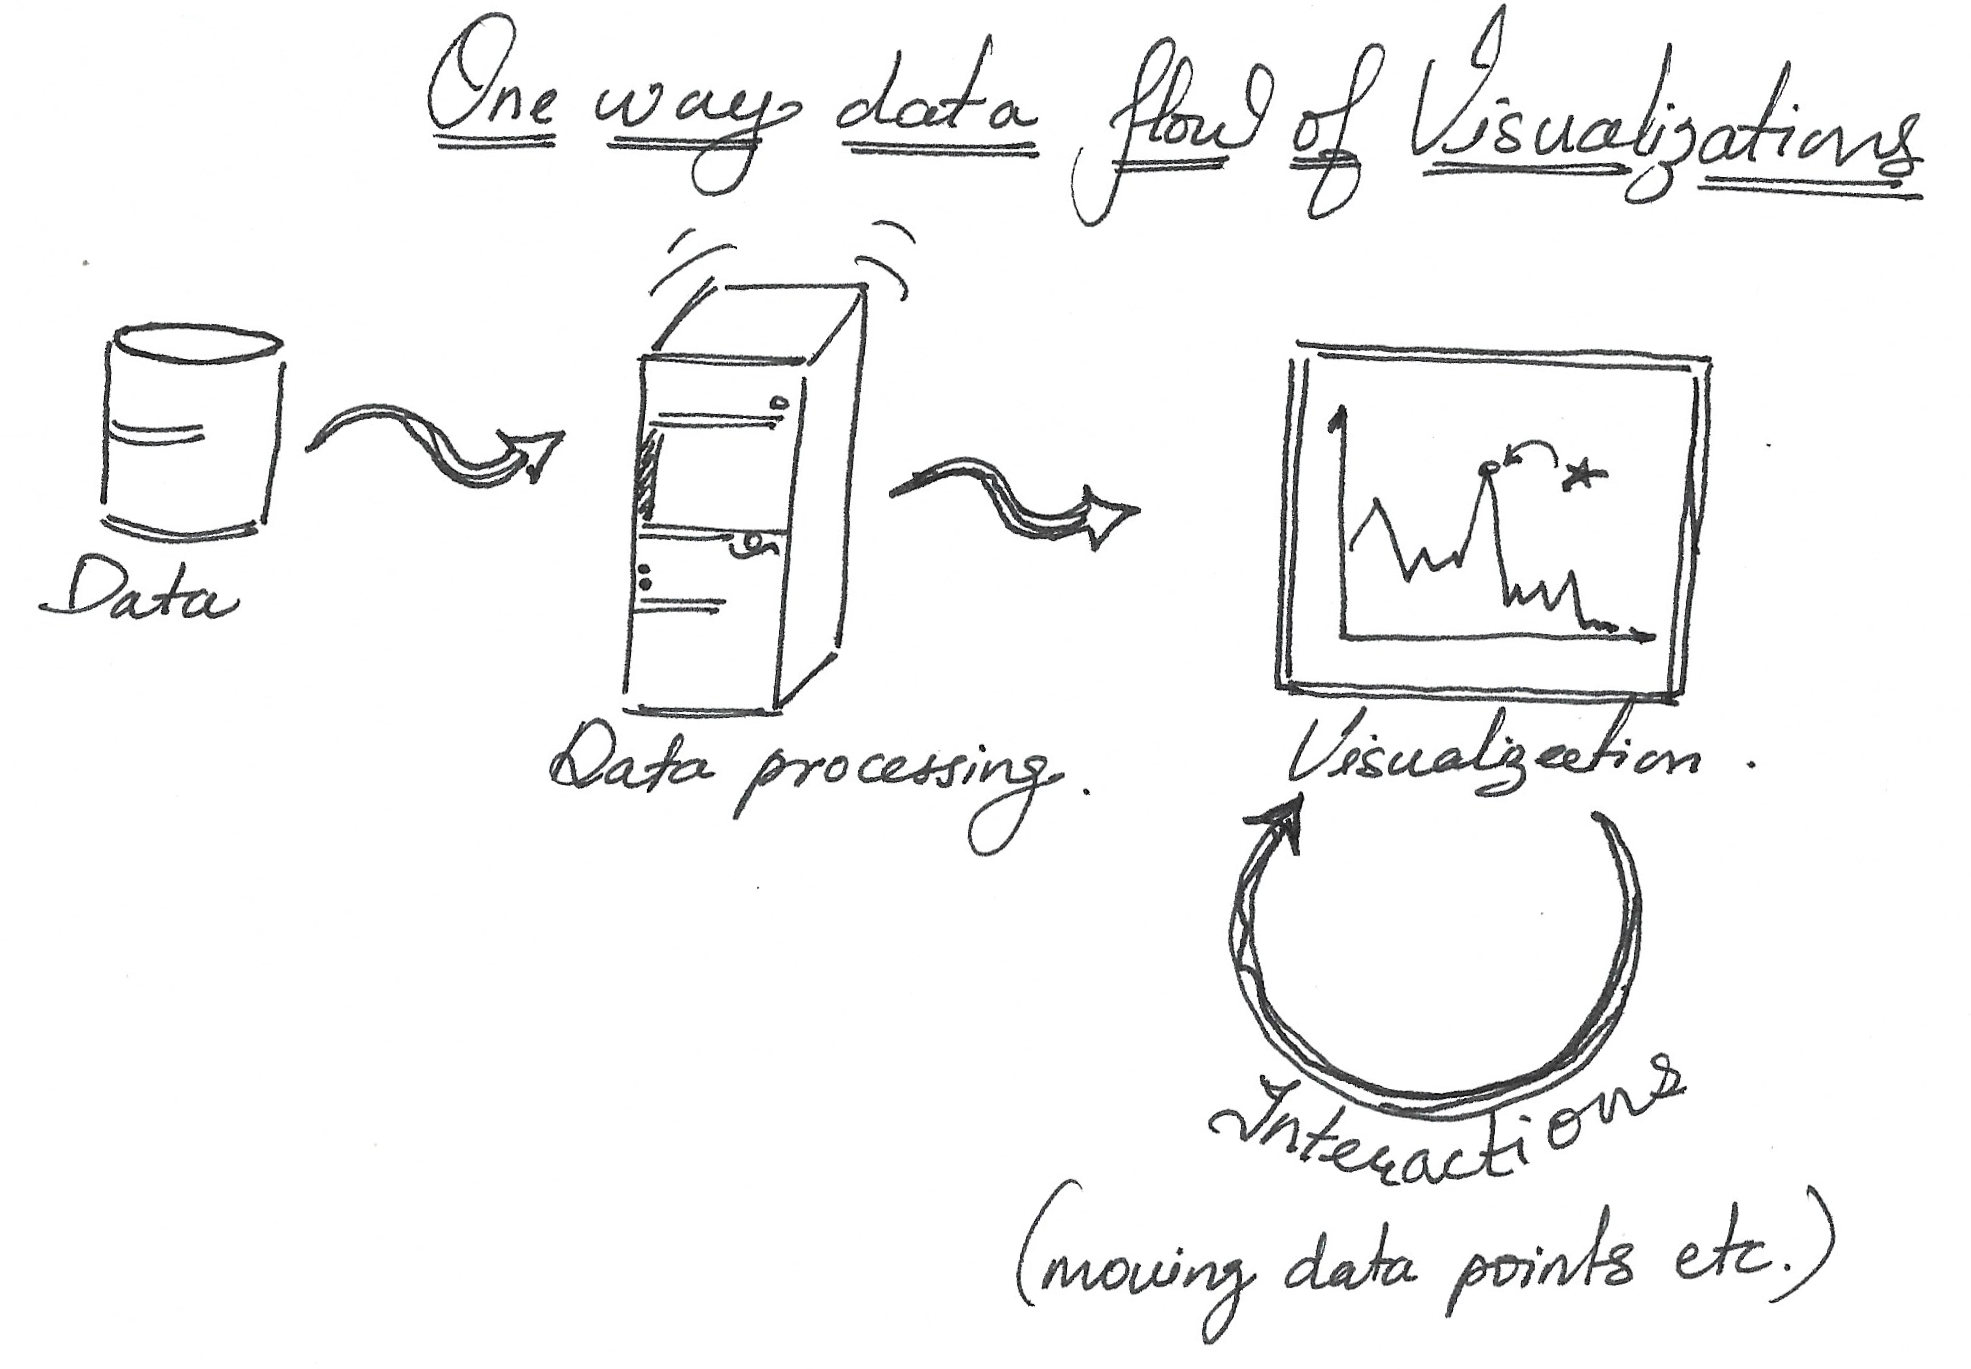 One way data flow of Visualizations
Data
Data processing.
Visualization.
Interactions
(moving data points etc.)